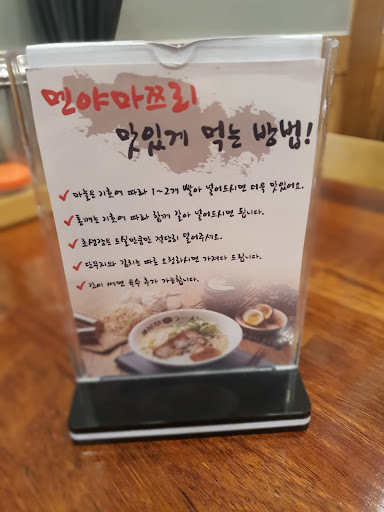 멘야마쯔리
맛있게 먹는 방법!
마늘은 기호에 따라 1~2개 빻아 넣어드시면 더욱 맛있어요.
통깨는 기호에 따라 함께 갈아 넣어드시면 됩니다.
초생강은 드실만큼만 적당히 덜어주세요.
단무지와 김치는 따로 요청하시면 가져다 드립니다.
간이 쎄면 육수 추가 가능합니다.